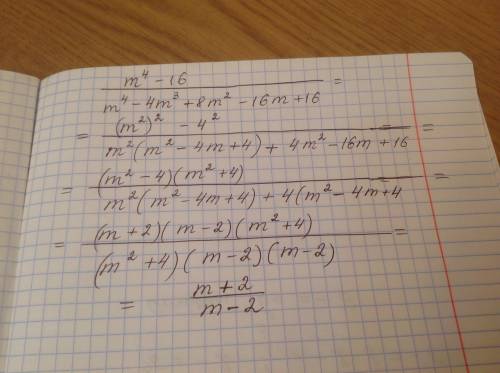 m⁴ - 16
m⁴ - 4m³ + 8m² - 16m + 16 =
= (m²)² - 4²
m²(m² - 4m + 4) + 4m² - 16m + 16 =
= (m² - 4)(m² + 4)
m²(m² - 4m + 4) + 4(m² - 4m + 4 =
= (m + 2)(m - 2)(m² + 4) =
(m² + 4)(m - 2)(m - 2)
= m + 2
m - 2